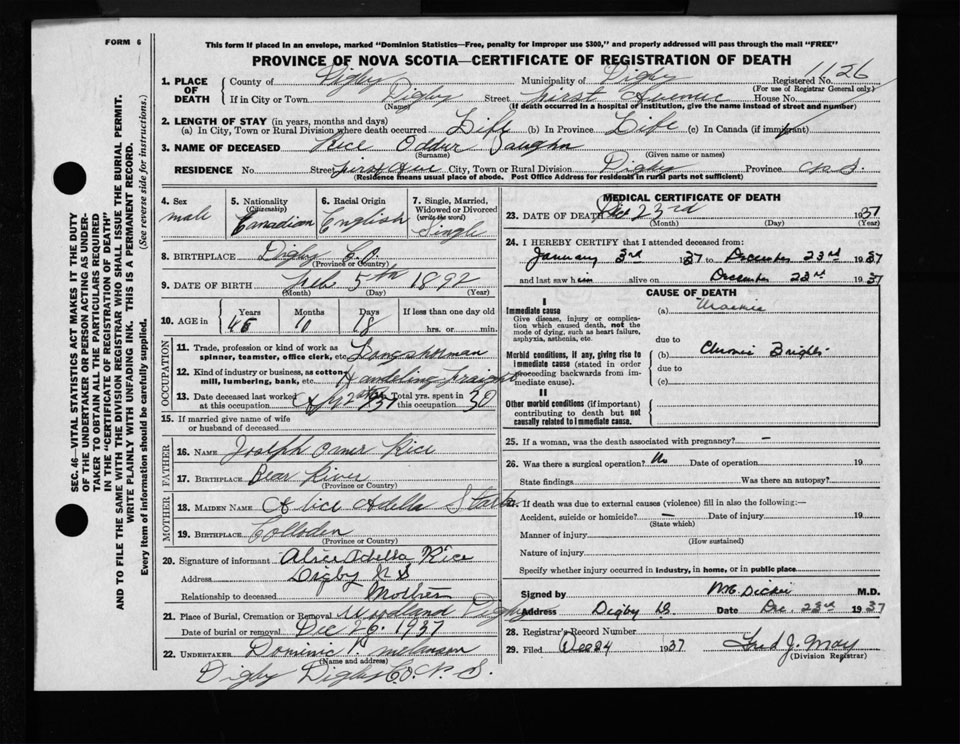 FORM 6
This form if placed in an envelope, marked "Dominion Statistics—Free, penalty for improper use $300," and properly addressed will pass through the mail "FREE"
PROVINCE OF NOVA SCOTIA—CERTIFICATE OF REGISTRATION OF DEATH
1. PLACE OF DEATH
County of Digby Municipality of Digby Registered No. 1126
(For use of Registrar General only)
If in City or Town Digby Street First Avenue House No.
(Name) (If death occurred in a hospital of institution, give the name instead of street and number)
2. LENGTH OF STAY (in years, months and days)
(a) In City, Town or Rural Division where death occurred Life (b) In Province Life (c) In Canada (if immigrant)
3. NAME OF DECEASED Rice Oddur Vaughn
(Surname) (Given name or names)
RESIDENCE No. Street First Ave City, Town or Rural Division Digby Province N.S.
(Residence means usual place of abode. Post Office Address for residents in rural parts not sufficient)
4. Sex male
5. Nationality (Citizenship) Canadian
6. Racial Origin English
7. Single, Married, Widowed or Divorced (write the word) Single
8. BIRTHPLACE Digby Co.
(Province or Country)
9. DATE OF BIRTH Feb 5th 1892
(Month) (Day) (Year)
10. AGE in Years 45 Months 10 Days 18 If less than one day old hrs. or min.
OCCUPATION
11. Trade, profession or kind of work as spinner, teamster, office clerk, etc. Longshorman
12. Kind of industry or business, as cotton-mill, lumbering, bank, etc. Handling fraight
13. Date deceased last worked at this occupation /37 Total yrs. spent in this occupation 30
15. If married give name of wife or husband of deceased
FATHER
16. NAME Joseph Rice
17. BIRTHPLACE Bear River
(Province or Country)
MOTHER
18. MAIDEN NAME Alice Adella
19. BIRTHPLACE Colloden
(Province or Country)
20. Signature of informant Alice Adella Rice
Address Digby N S
Relationship to deceased Mother
21. Place of Burial, Cremation or Removal Woodland Digby
Date of burial or removal Dec 26. 1937
22. UNDERTAKER Dominic P. Melanson
(Name and address)
Digby Digby Co. N. S.
MEDICAL CERTIFICATE OF DEATH
23. DATE OF DEATH Dec 23rd 1937
(Month) (Day) (Year)
24. I HEREBY CERTIFY that I attended deceased from:
January 3rd 1937 to December 23rd 1937
and last saw him alive on December 23rd 1937
CAUSE OF DEATH
I
Immediate cause
Give disease, injury or complication which caused death, not the mode of dying, such as heart failure, asphyxia, asthenia, etc.
(a) Uraemia
due to
Morbid conditions, if any, giving rise to immediate cause (stated in order proceeding backwards from immediate cause).
(b) Chronic Brights
due to
(c)
II
Other morbid conditions (if important) contributing to death but not causally related to immediate cause.
25. If a woman, was the death associated with pregnancy? —
26. Was there a surgical operation? No Date of operation 19
State findings Was there an autopsy?
27. If death was due to external causes (violence) fill in also the following:—
Accident, suicide or homicide? — Date of injury 19
(State which)
Manner of injury
(How sustained)
Nature of injury
Specify whether injury occurred in industry, in home, or in public place
Signed by Dickie M.D.
Address Digby Date Dec. 23rd 1937
28. Registrar's Record Number
29. Filed Dec 24 1937 Fred J. May
(Division Registrar)
SEC. 46—VITAL STATISTICS ACT MAKES IT THE DUTY
OF THE UNDERTAKER OR PERSON ACTING AS UNDERTAKER TO OBTAIN ALL THE PARTICULARS REQUIRED
IN THE "CERTIFICATE OF REGISTRATION OF DEATH"
AND TO FILE THE SAME WITH THE DIVISION REGISTRAR WHO SHALL ISSUE THE BURIAL PERMIT.
WRITE PLAINLY WITH UNFADING INK. THIS IS A PERMANENT RECORD.
Every item of information should be carefully supplied. (See reverse side for instructions.)